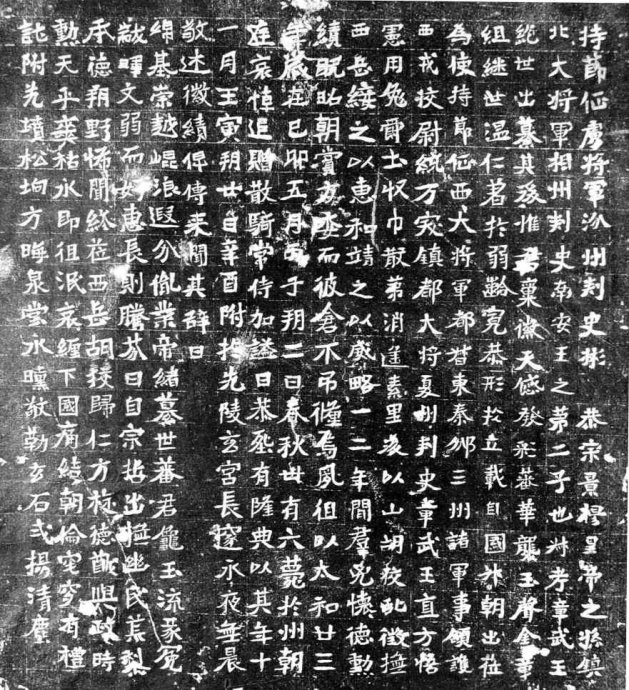 持節征虜將軍汾州刺史彬恭宗景穆皇帝之孫鎮
北大將軍相州刺史南安王之第二子也叔考章武王
絕世出纂其後惟君稟徽天感發彩蕃華襲玉聲金章
組繼世溫仁著於弱齡寬恭形於立載自國升朝出莅
為使持節征西大將軍都督東秦豳三州諸軍事領護
西戎校尉統万突鎮都大將夏州刺史章武王直方悟
憲用免爵土收巾散第消遙素里後以山胡校亂徵撫
西岳綏之以惠和靖之以威略一二年間群兇懷德勳
績既昭朝賞方委而彼倉不弔殲焉夙徂以太和廿三
年歲在己卯五月丙子朔二日春秋卅有六薨於州朝
廷哀悼追贈散騎常侍加謚曰恭烝有隆典以其年十
一月壬寅朔廿日辛酉附於先陵玄宮長邃永夜無晨
敬述徽績俾傳來聞其辭曰
綿基崇越崐浪遐分胤業帝緒纂世蕃君龜玉流彖冕
黻暉文弱而好惠長則騰芬曰自宗哲出撫幽民蒐梨
承德朔野怖聞終莅西岳胡援歸仁方旌德猷與政時
勳天乎爽祜水即徂泯哀纏下國痛結朝倫窀穸有禮
託附先墳松埛方晦泉堂冰曠敬勒玄石式揚清塵